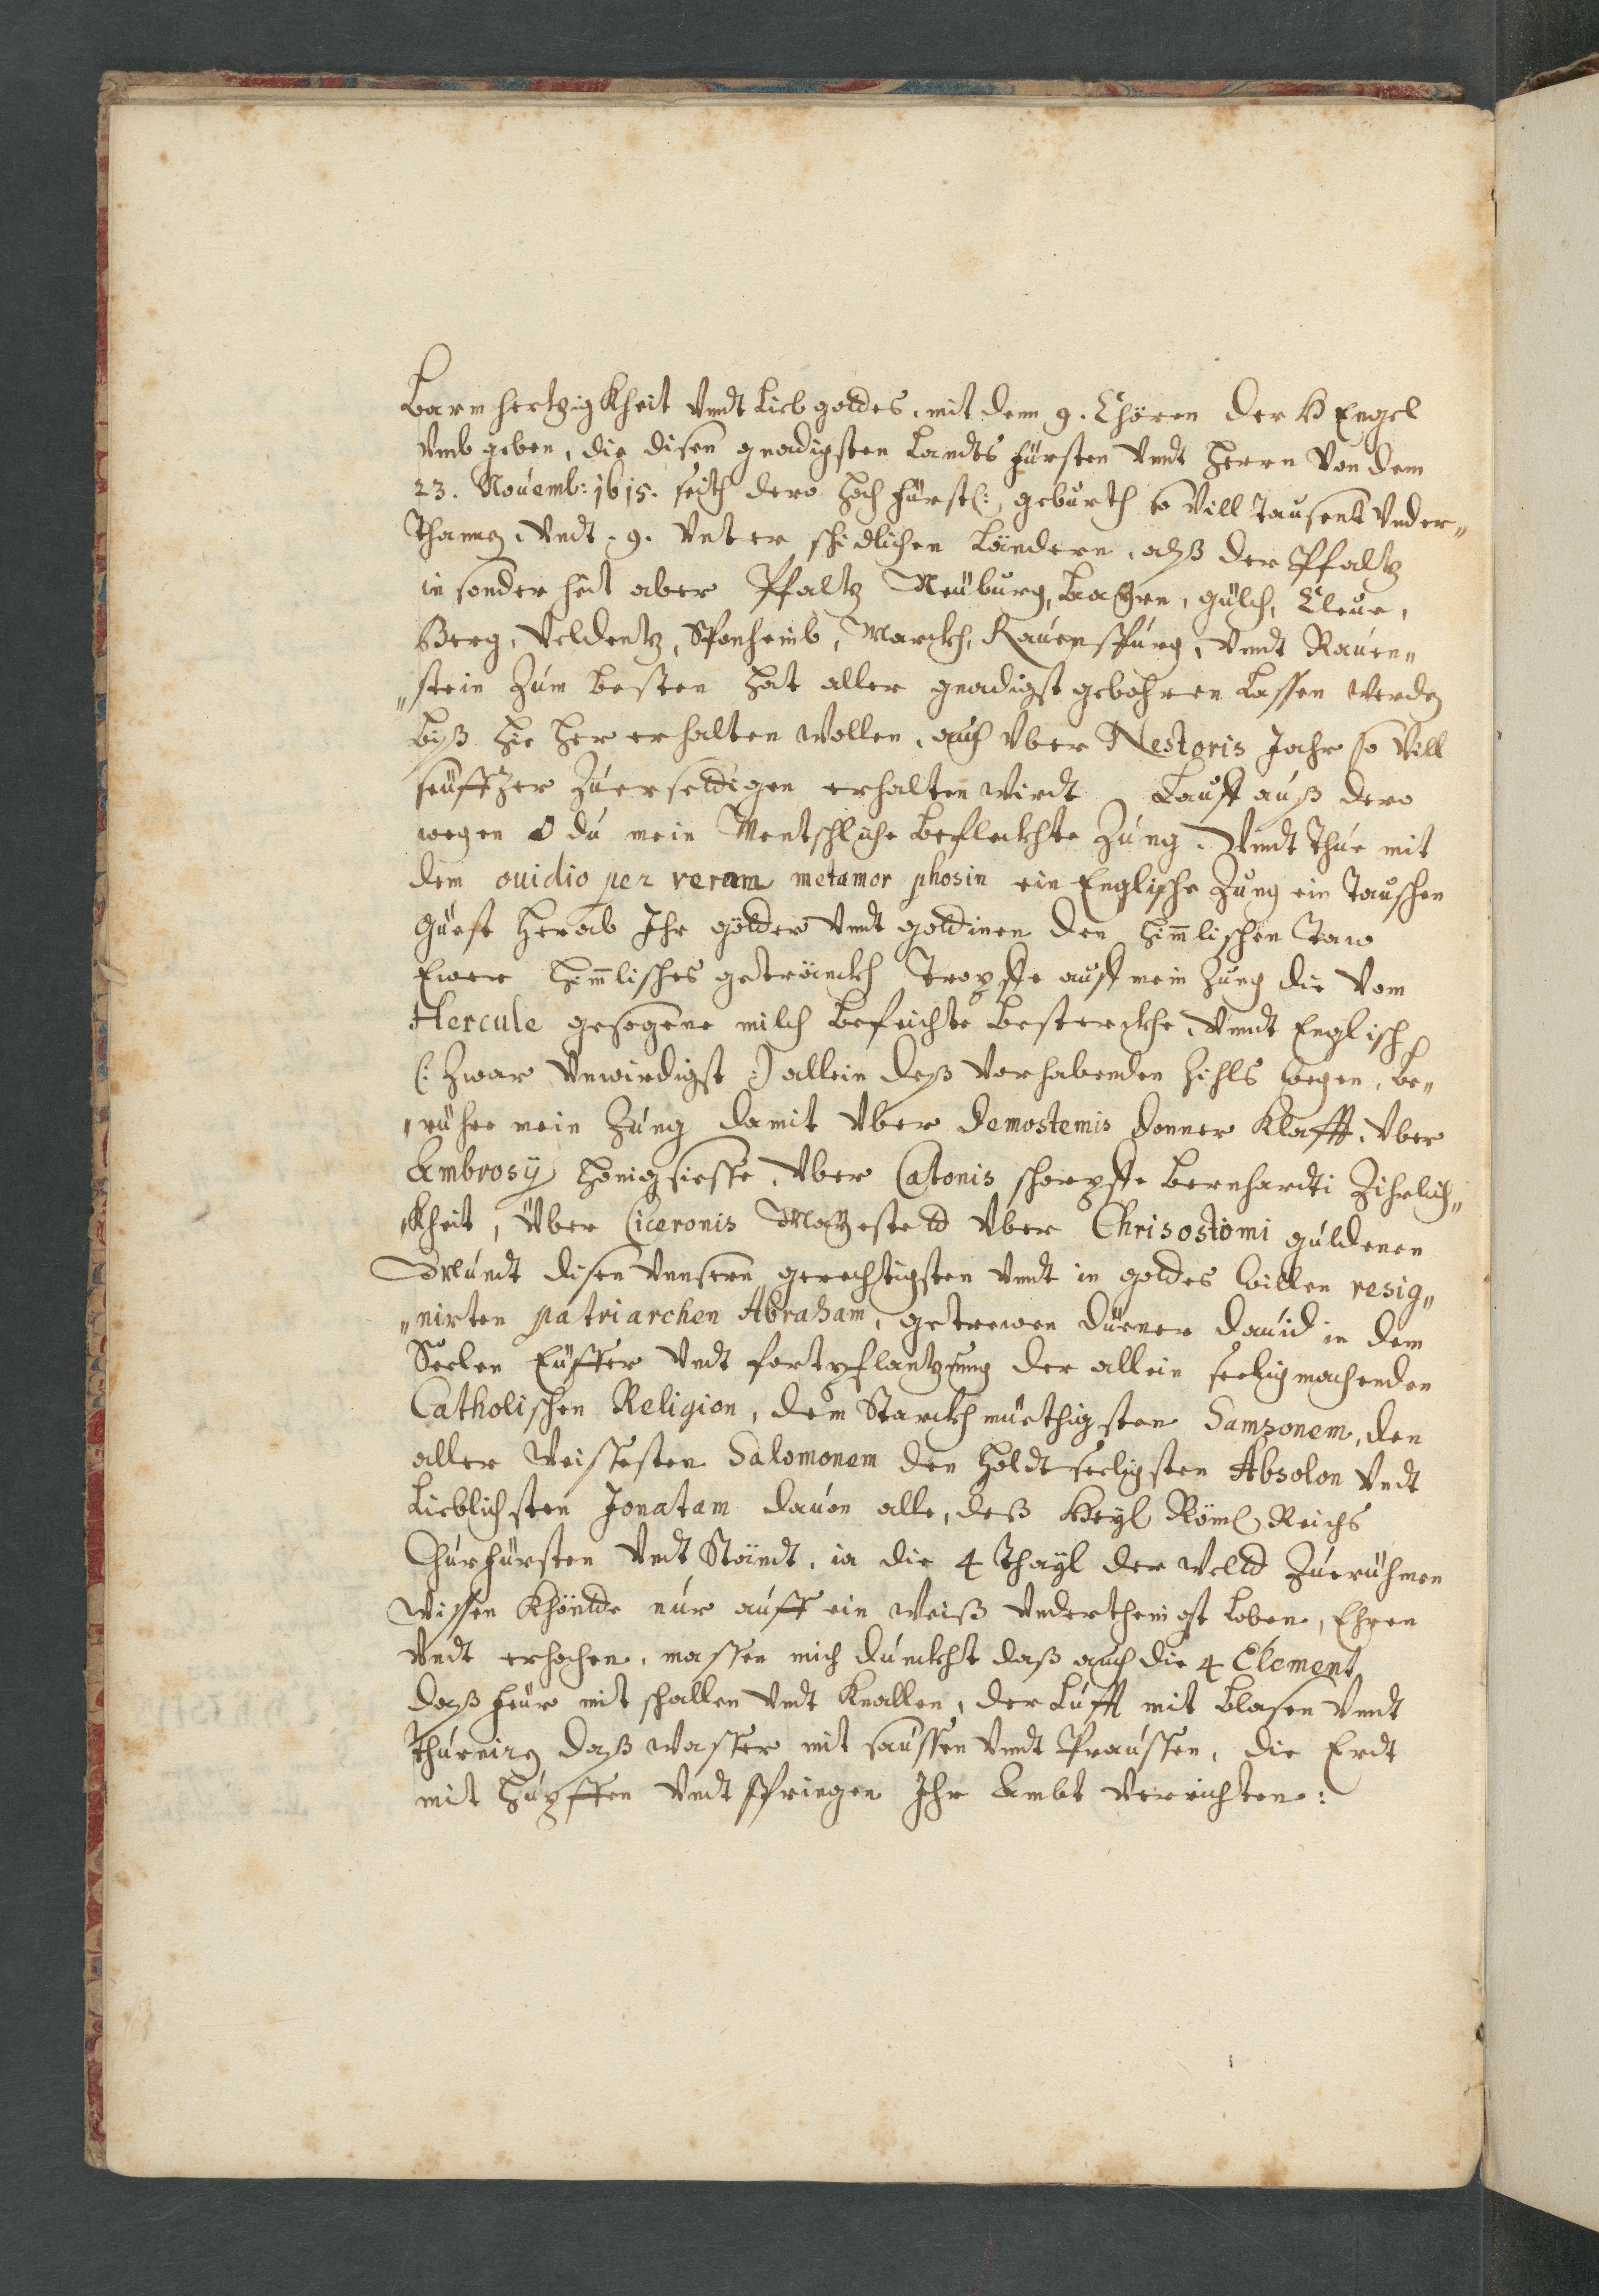 Barmhertzigkheit vndt Lieb goldes, mit denn 9. Chören der H Engel
vmb geben, die disen gnadigsten Landts fürsten vndt Herrn von dem
23. Nouemb: 1615. seith dero Hoch fürstl: gebürth so vill tausent vnder„
thanen, vndt 9. vnter schidlichen Ländern, alß der Pfaltz
in sonder heit aber Pfaltz Neüburg, Bayrn, gülch, Cleue,
Berg, Veldentz, Sponheimb, Marckh, Rauenspurg, vndt Rauen„
„stein zum besten hat aller gnadigst gebohren lassen werden
biß hie her erhalten wollen, auch vber Nestoris Jahr so vill
seüfftzer zu erseldigen erhalten wirdt Lauff auß dero
wegen O du mein Mentschliche befleckhte Zung, vndt thue mit
dem ouidio per veram metamor phosin ein Englische Zung ein tauschen
güest herab Ihr gölder vndt goldinen den himlischen Taw
Ewer himlisches getränckh tropffe auff mein Zung die vom
Hercule gesogene milch befeichte bestorckhe, vndt Englisch
(: zwar vnwirdigst :) allein deß vorhabenden Zihls wegen, be„
„rühre mein Zung damit vber Demostemis donner Klapff, vber
Ambrosÿ hönigsiesse, vber Catonis schorpffe Bernhardti Zihrlich„
„kheit, vber Ciceronis Mayesteld vber Chrisostomi guldenen
Mundt disen vnsern gerechtigsten vndt in goldes willen resig„
„nirten patriarchen Abraham, getrewen düener Dauid in dem
Seelen Eüffer vndt fortpflantzung der allein seeligmachenden
Catholischen Religion, dem Starckhmüethigsten Samsonem, den
aller weissesten Salomonem den holdtseeligsten Absolon vndt
Lieblichsten Jonatam dauon alle, deß Heyl Röml Reichs
Churfürsten vndt Ständt, ia die 4 thayl der weld zuerühmen
wissen khöndte nur auff ein weiß vnderthenigst loben, Ehren
vndt erhochen, massen mich dunckht daß auch die 4 Element
daß feür mit schallen vndt knallen, der Lufft mit blasen vndt
thurnirn daß wasser mit saussen vndt praussen, die Erdt
mit hupffen vndt springen Ihr Ambt verrichten: